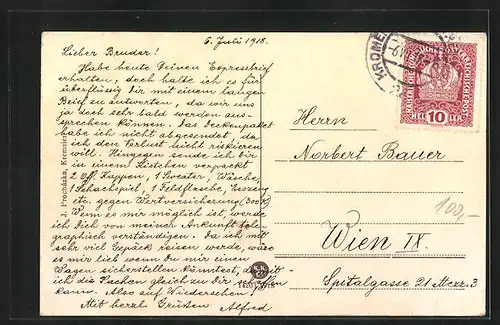 6. Juli 1918.
Lieber Bruder!
Habe heute Deinen Expressbrief
erhalten, doch halte ich es für
überflüssig Dir mit einem langen
Brief zu antworten, da wir uns
ja doch sehr bald werden aus-
sprechen können. Das Deckenpaket
habe ich nicht abgesendet, da
ich den Verlust nicht riskieren
will. Hingegen sende ich Dir
in einem Kistchen verpackt
2 Off. Kappen, 1 Sweater, Wäsche,
1 Schachspiel, 1 Feldflasche,
etc. gegen Wertversicherung (300 K)
Wenn es mir möglich ist, werde
ich Dich von meiner Ankunft tele-
graphisch verständigen. Da ich mit
sehr viel Gepäck reisen werde, wäre
es mir lieb wenn Du mir einen
Wagen sicherstellen könntest, damit
ich die Sachen gleich zu Dir
kann. Also auf Wiedersehen!
Mit herzl. Grüßen Alfred
J. Procházka, Kremsier
KROMĚ
10
HELLER
Herrn
Norbert Bauer
100,-
Wien IX.
Spitalgasse 21 Mezz. 3